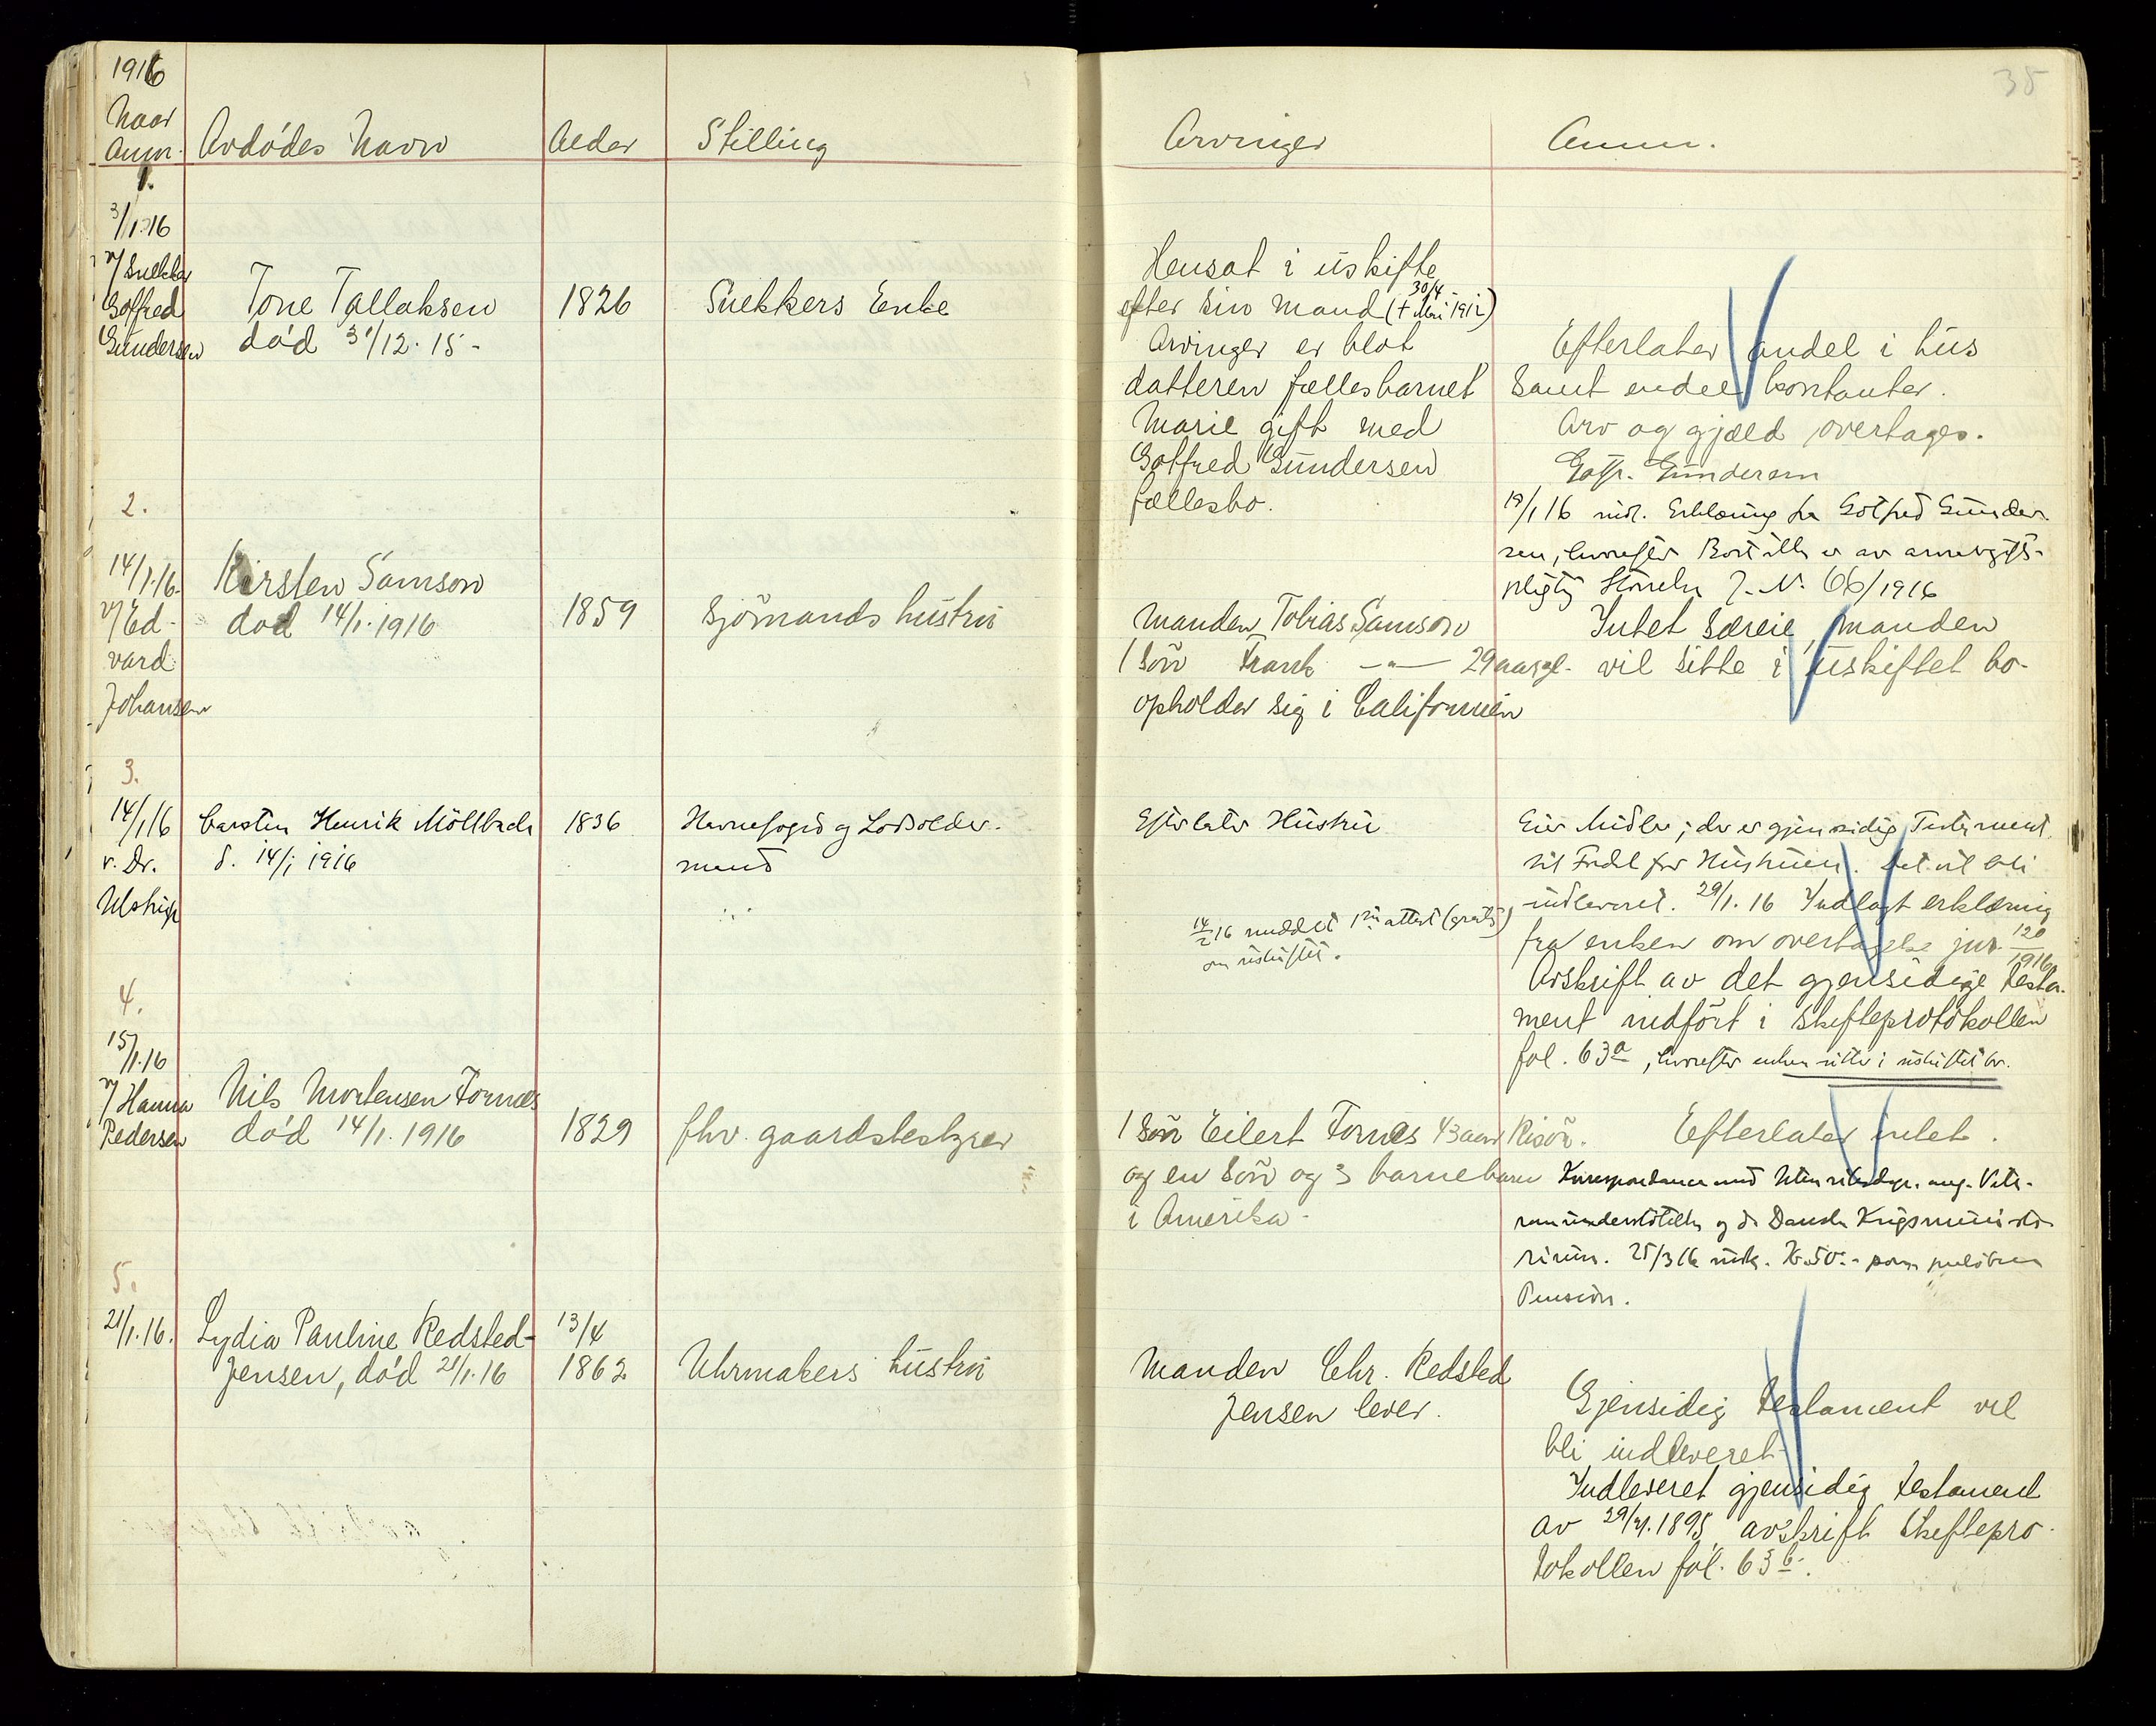 1916
Naar
Anm.
Avdödes Navn
Alder
Stilling
Arvinger
Anm.
35
1.
3/1.16
v/ Snekker
Gotfred
Gundersen
Tone Tallaksen
död 31/12.15-
1826
Snekkers Enke
Hensat i uskifte
efter sin mand (+ 30/4 1912)
Arvinger er blot
datteren fællesbarnet
Marie gift med
Gotfred Gundersen
fællesbo.
Efterlater andel i hus
samt endel kontanter.
Arv og gjæld overtages.
Gotfr. Gundersen
19/1 16 indl. Erklæring fra Gotfred Gunder-
sen, hvorefter Boet ikke er av arveavgifts-
pligtig Störrelse J.-N. 66/1916
2.
14/1.16.
v/ Ed-
vard
Johansen
Kirsten Samson
död 14/1.1916
1859
Sjömands hustru
Manden Tobias Samson
1 Sön Frank —„— 29 aar gl.
opholder sig i Californien
Intet Særeie, Manden
vil sitte i uskiftet bo-
3.
14/1 16
v. Dr.
Ulstrup
Carsten Henrik Möllbach
d. 14/1 1916
1836
Havnefogd og Lodsolder-
mand
Efterlater Hustru
14/2 16 meddelt attest (gratis)
om uskiftet.
Eier Midler; der er gjensidig Testament
til Fordel for Hustruen. Det vil bli
indleveret. 29/1.16 Indlagt erklæring
fra enken om overtagelse jnr. 120/1916
Avskrift av det gjensidige testa-
ment indfört i skifteprotokollen
fol. 63a, hvorefter enken sitter i uskiftet bo.
4.
15/1.16
v/ Hanna
Pedersen
Nils Mortensen Fornæs
död 14/1.1916
1829
fhv. gaardsbestyrer
1 Sön Eilert Fornæs 43 aar Risör.
og en Sön og 3 barnebarn
i Amerika-
Efterlater intet.
Korrespondance med Utenriksdep. ang. Vete-
ranunderstöttelse og de Danske Krigsministe-
rium. 25/3 16 Kr. 50.- som
Pension.
5.
21/1.16.
Lydia Pauline Redsted-
Jensen, död 21/1.16
13/4
1862
Uhrmakers hustru
Manden Chr. Redsted
Jensen lever.
Gjensidig testament vil
bli indleveret-
Indleveret gjensidig testament
av 1895 avskrift Skiftepro-
tokollen fol. 63b.